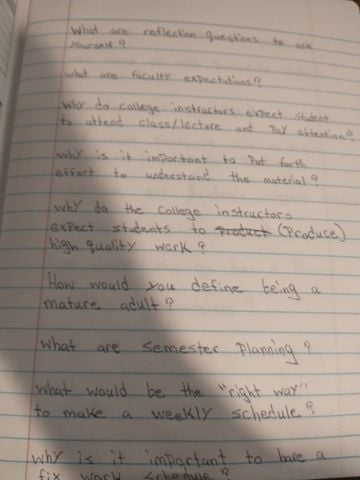 What are reflection questions to ask
yourself?
what are faculty expectations?
Why do college instructors expect student
to attend class/lecture and pay attention?
why is it important to put forth
effort to understand the material?
why do the college instructors
expect students to product (Produce)
high quality work?
How would you define being a
mature adult?
what are semester planning?
what would be the "right way"
to make a weekly schedule?
why is it important to have a
fix work schedule?